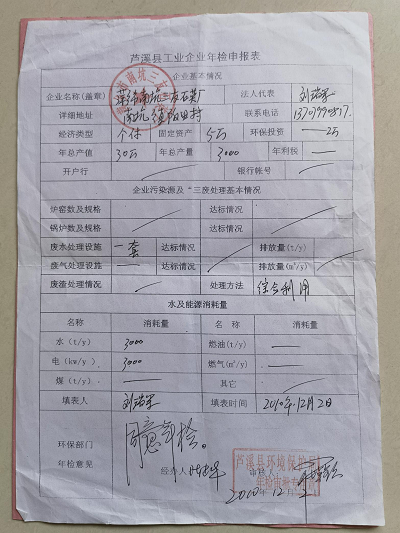 芦溪县工业企业年检申报表
企业基本情况
企业名称(盖章) 法人代表
详细地址 联系电话
经济类型 个体 固定资产 5万 环保投资 2万
年总产值 30万 年总产量 3000 年利税 —
开户行 银行帐号
企业污染源及“三废处理基本情况
炉窑数及规格 达标情况
锅炉数及规格 达标情况
废水处理设施 一套 达标情况 排放量(t/y)
废气处理设施 — 达标情况 排放量(m³/y)
废渣处理情况 处理方法 综合利用
水及能源消耗量
名称 消耗量 名 称 消耗量
水(t/y) 3000 燃油(t/y) —
电(kw/y) 3000 燃气(m³/y) —
煤(t/y) — 其它
填表人 填表时间 2010年12月2日
环保部门
年检意见
同意年检。
经办人
审管人
芦溪县环境保护局
年检审批专用章
2010年12月2